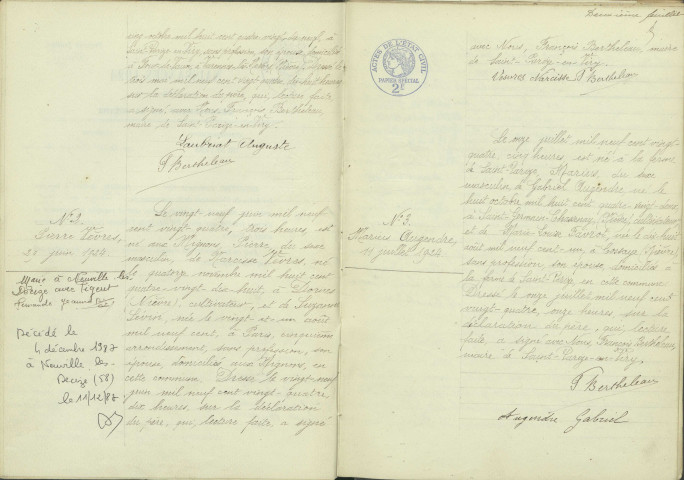 mil huit cent quatre vingt dix neuf, à
Saint Parize en Viry, sans profession, son épouse, domiciliés
mai mil neuf cent vingt quatre, dix huit heures
sur la déclaration du père, qui, lecture faite
a signé avec Nous François Berthelau
maire de Saint Parize en Viry.
Auguste
F Berthelau
N° 2
Pierre Vèvres,
29 juin 1924.
Marié à Neuville les
Decize avec
Fernande
Décédé le
4 décembre 1987
à Neuville-les-
Decize (58)
le 11/12/87
Le vingt neuf juin mil neuf
cent vingt quatre, trois heures est
né aux Pierre, du sexe
masculin, de Narcisse Vèvres, né
le quatorze novembre mil huit cent
quatre-vingt-dix-huit, à Dornes
(Nièvre), cultivateur, et de Suzanne
née le vingt et un août
mil neuf cent, à Paris, cinquième
arrondissement, sans profession, son
épouse, domiciliés aux en
cette commune. Dressé le vingt-neuf
juin mil neuf cent vingt-quatre
dix heures, sur la déclaration
du père, qui, lecture faite, a signé
Deuxième feuillet
ACTES DE L'ÉTAT CIVIL
PAPIER SPÉCIAL
2F
avec Nous, François Berthelau, maire
de Saint-Parize-en-Viry.
Vèvres Narcisse F Berthelau
N° 3
Marius Augendre,
11 juillet 1924
Le onze juillet mil neuf cent vingt-
quatre, cinq heures, est né à la ferme
à Saint-Parize, Marius, du sexe
masculin, de Gabriel Augendre né le
huit octobre mil huit cent quatre-vingt
à Saint-Germain-Chassenay (Nièvre) cultivateur
et de Marie-Louise née le dix huit
août mil neuf cent-un, à Cossaye (Nièvre)
sans profession son épouse, domiciliés à
la ferme à Saint-Parize, en cette commune
Dressé le onze juillet mil neuf cent
vingt-quatre, onze heures sur la
déclaration du père, qui, lecture
faite, a signé avec Nous François Berthelau
maire à Saint-Parize-en-Viry.
F Berthelau
Augendre Gabriel